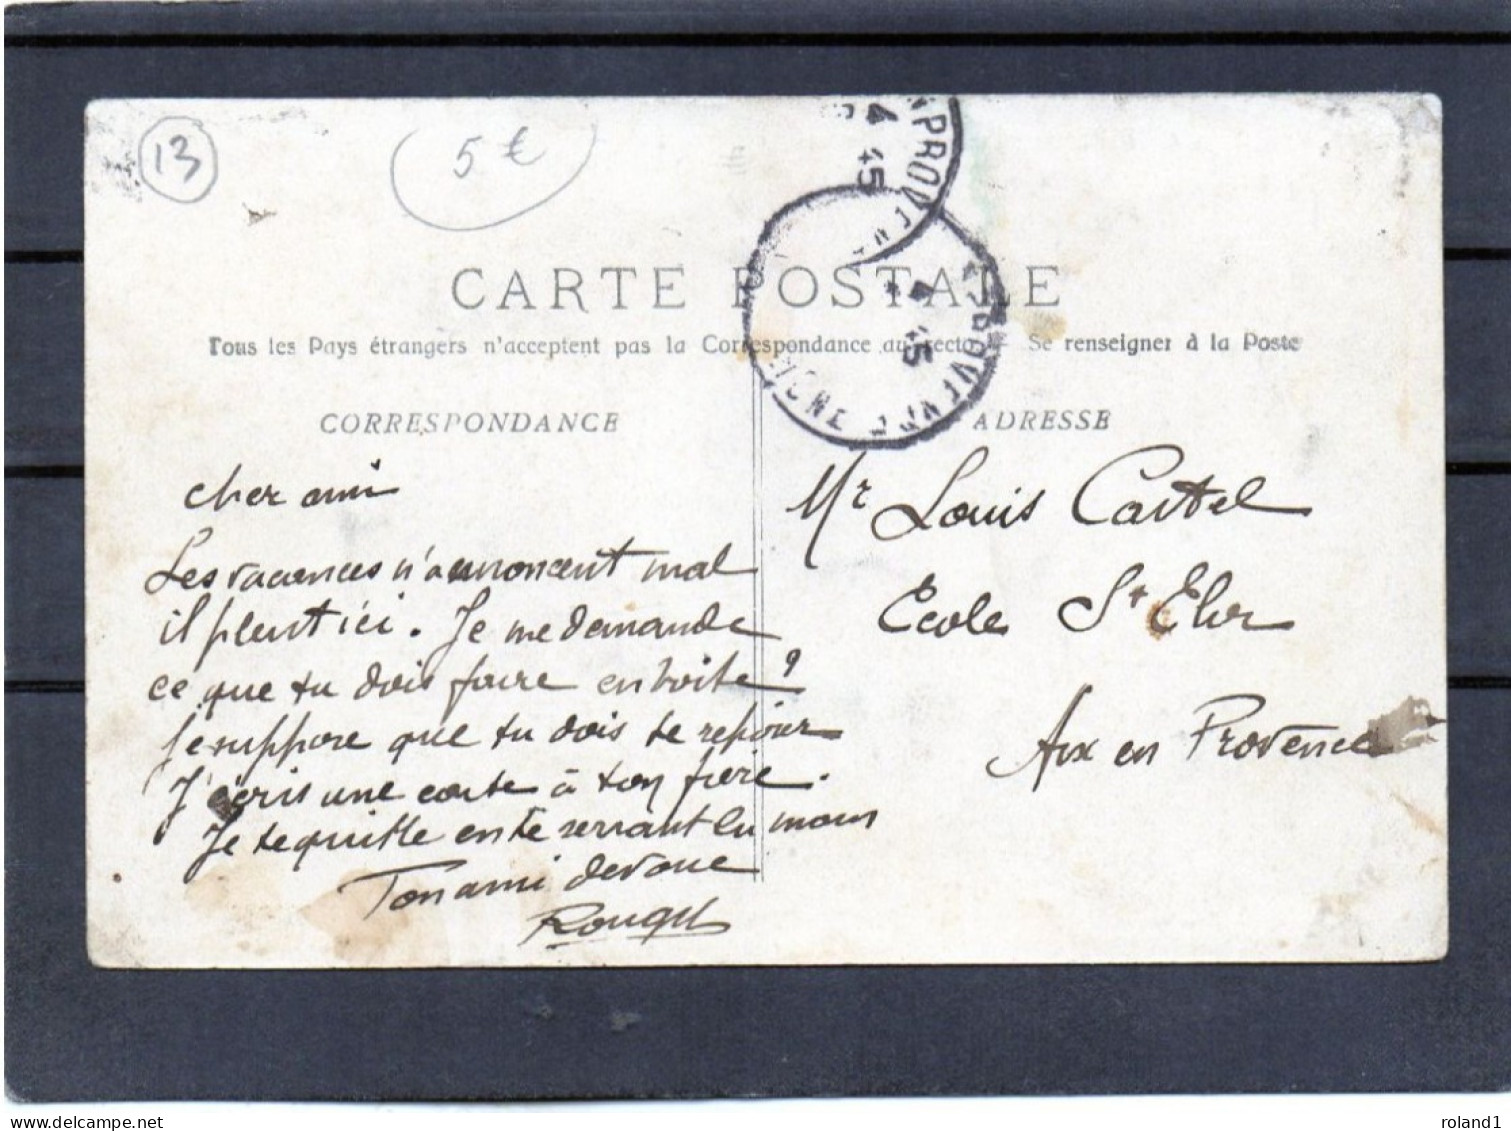 13
5 €
CARTE POSTALE
Tous les Pays étrangers n'acceptent pas la Correspondance au recto. Se renseigner à la Poste
CORRESPONDANCE
ADRESSE
cher ami
Les vacances s'annoncent mal
il pleut ici. Je me demande
ce que tu dois faire en boite?
Je suppose que tu dois te
J'écris une carte à ton frère.
Je te quitte en te serrant la main
Ton ami devoué
Mr Louis Castel
Ecole St Eloi
Aix en Provence
4 45
4 45
delcampe.net
roland1